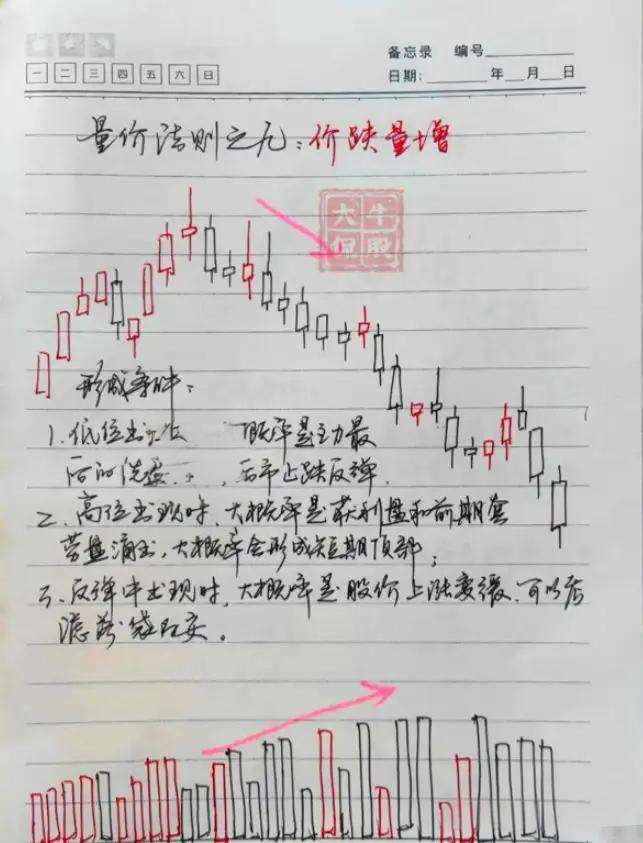 备忘录 编号
一 二 三 四 五 六 日
日期: 年 月 日
量价法则之九:价跌量增
大牛
侃股
形成条件:
1.低位出 概率是主力最
后的洗盘 后市止跌反弹.
2、高位出现时,大概率是获利盘和前期套
劳盘涌出,大概率会形成短期顶部;
3、反弹中出现时,大概率是股价上涨变缓、可以考
虑落袋为安.